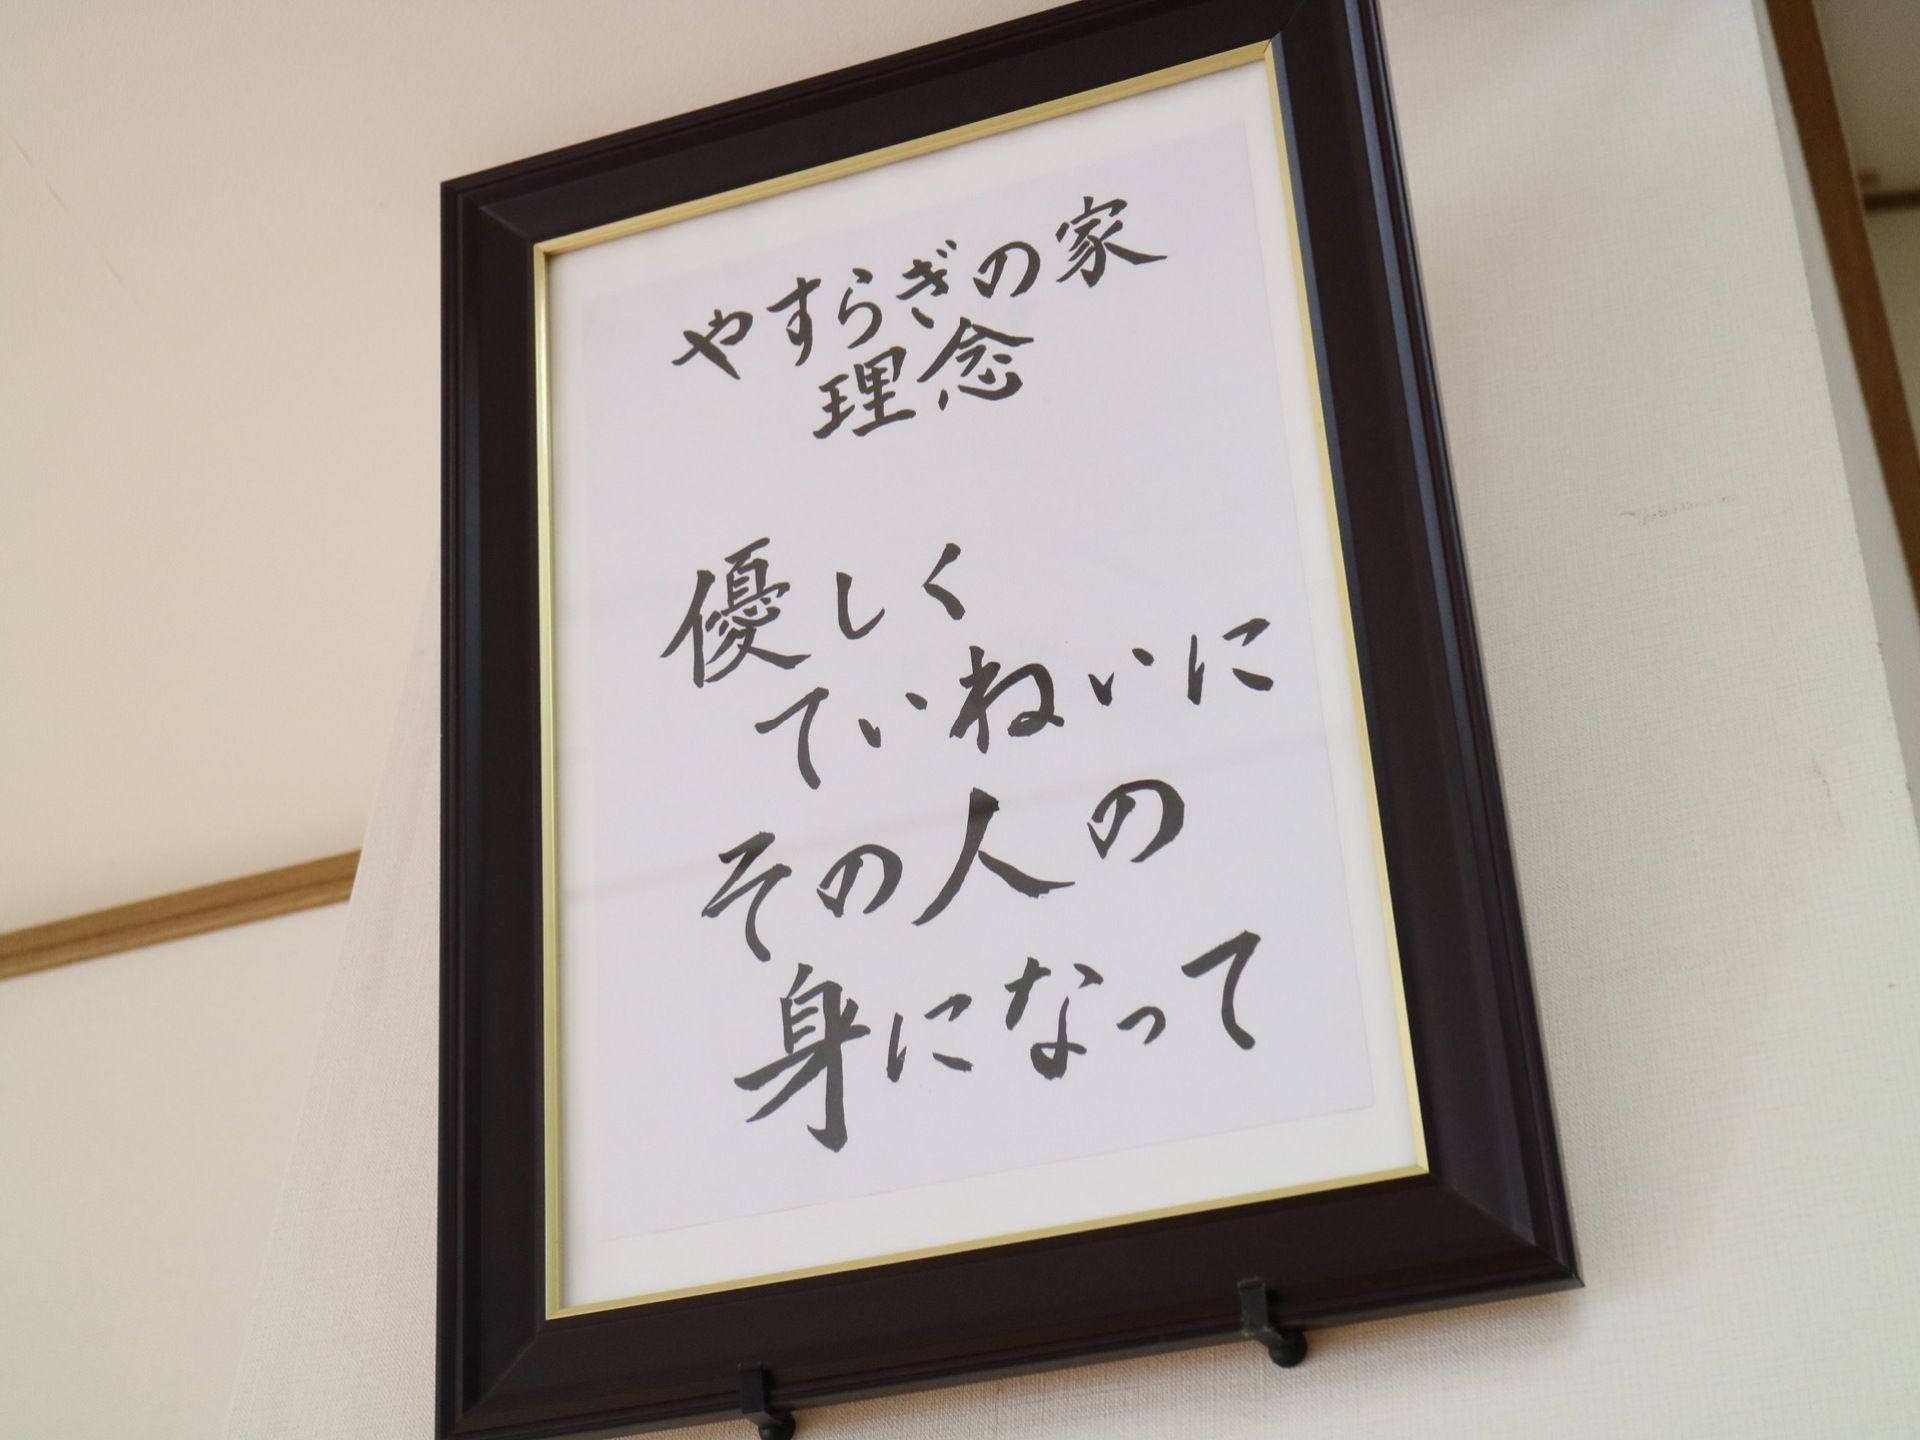 やすらぎの家
理念
優しく
ていねいに
その人の
身になって